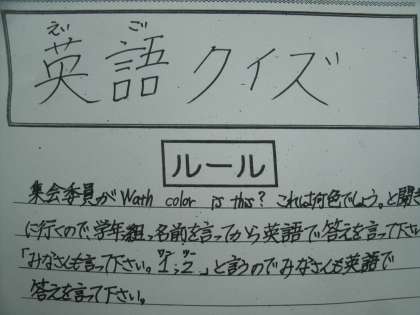 えい ご
英語クイズ
ルール
集会委員が Wath color is this? これは何色でしょう。と聞き
に行くので、学年、組、名前を言ってから英語で答えを言って下さい
「みなさんも言って下さい。1、2」と言うのでみなさんも英語で
答えを言って下さい。